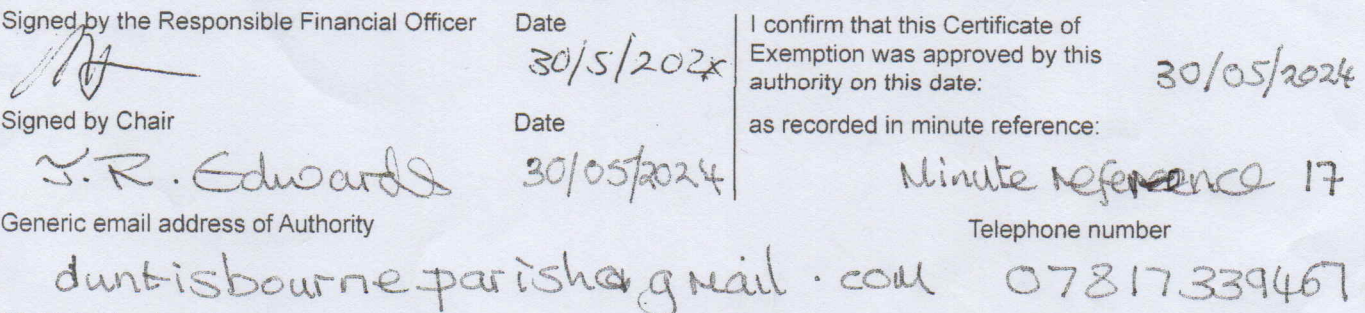 Signed by the Responsible Financial Officer Date
30/5/202x
I confirm that this Certificate of
Exemption was approved by this
authority on this date:
30/05/2024
Signed by Chair Date
J.R. Edwards 30/05/2024
as recorded in minute reference:
Minute reference 17
Generic email address of Authority
Telephone number
duntisbourne.parish@gmail.com 07817339467